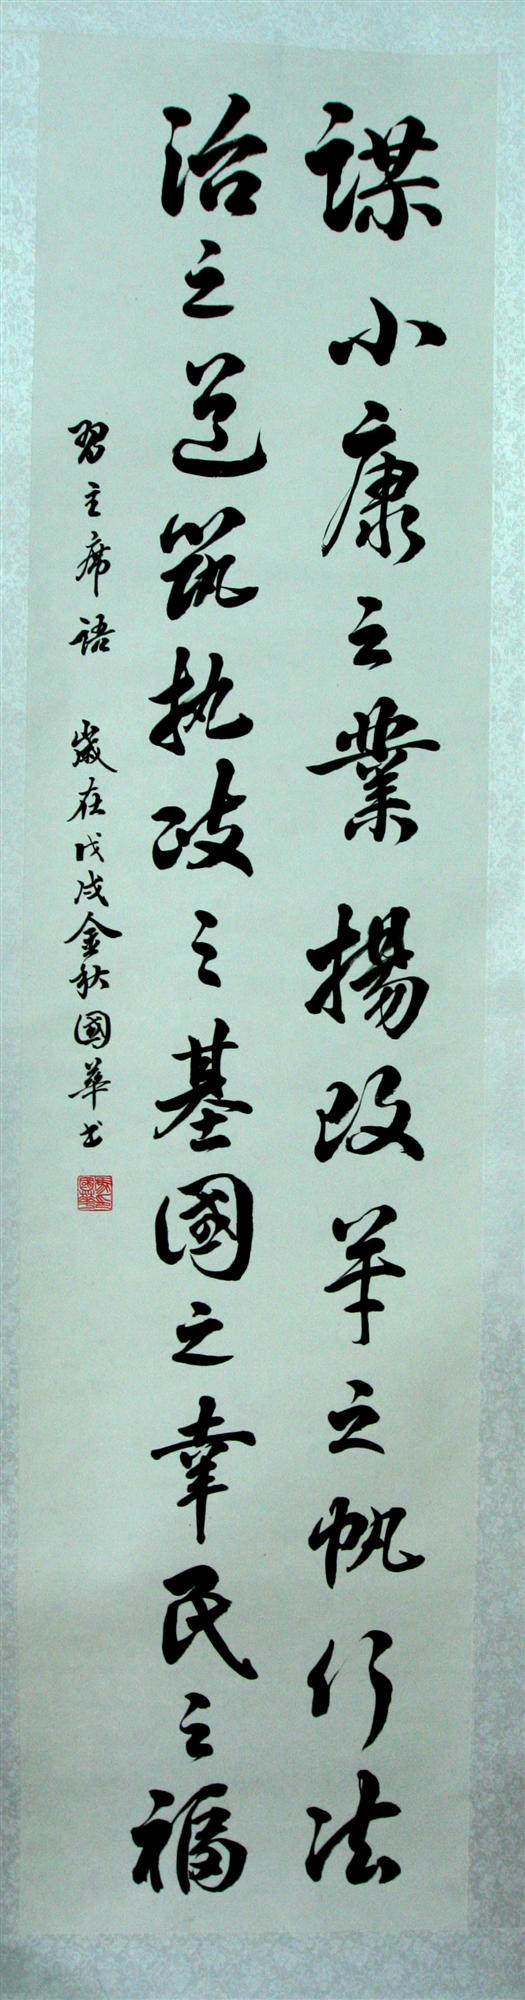 謀小康之業揚改革之帆行法
治之道筑执政之基國之幸民之福
習主席語 歲在戊戌金秋國華书